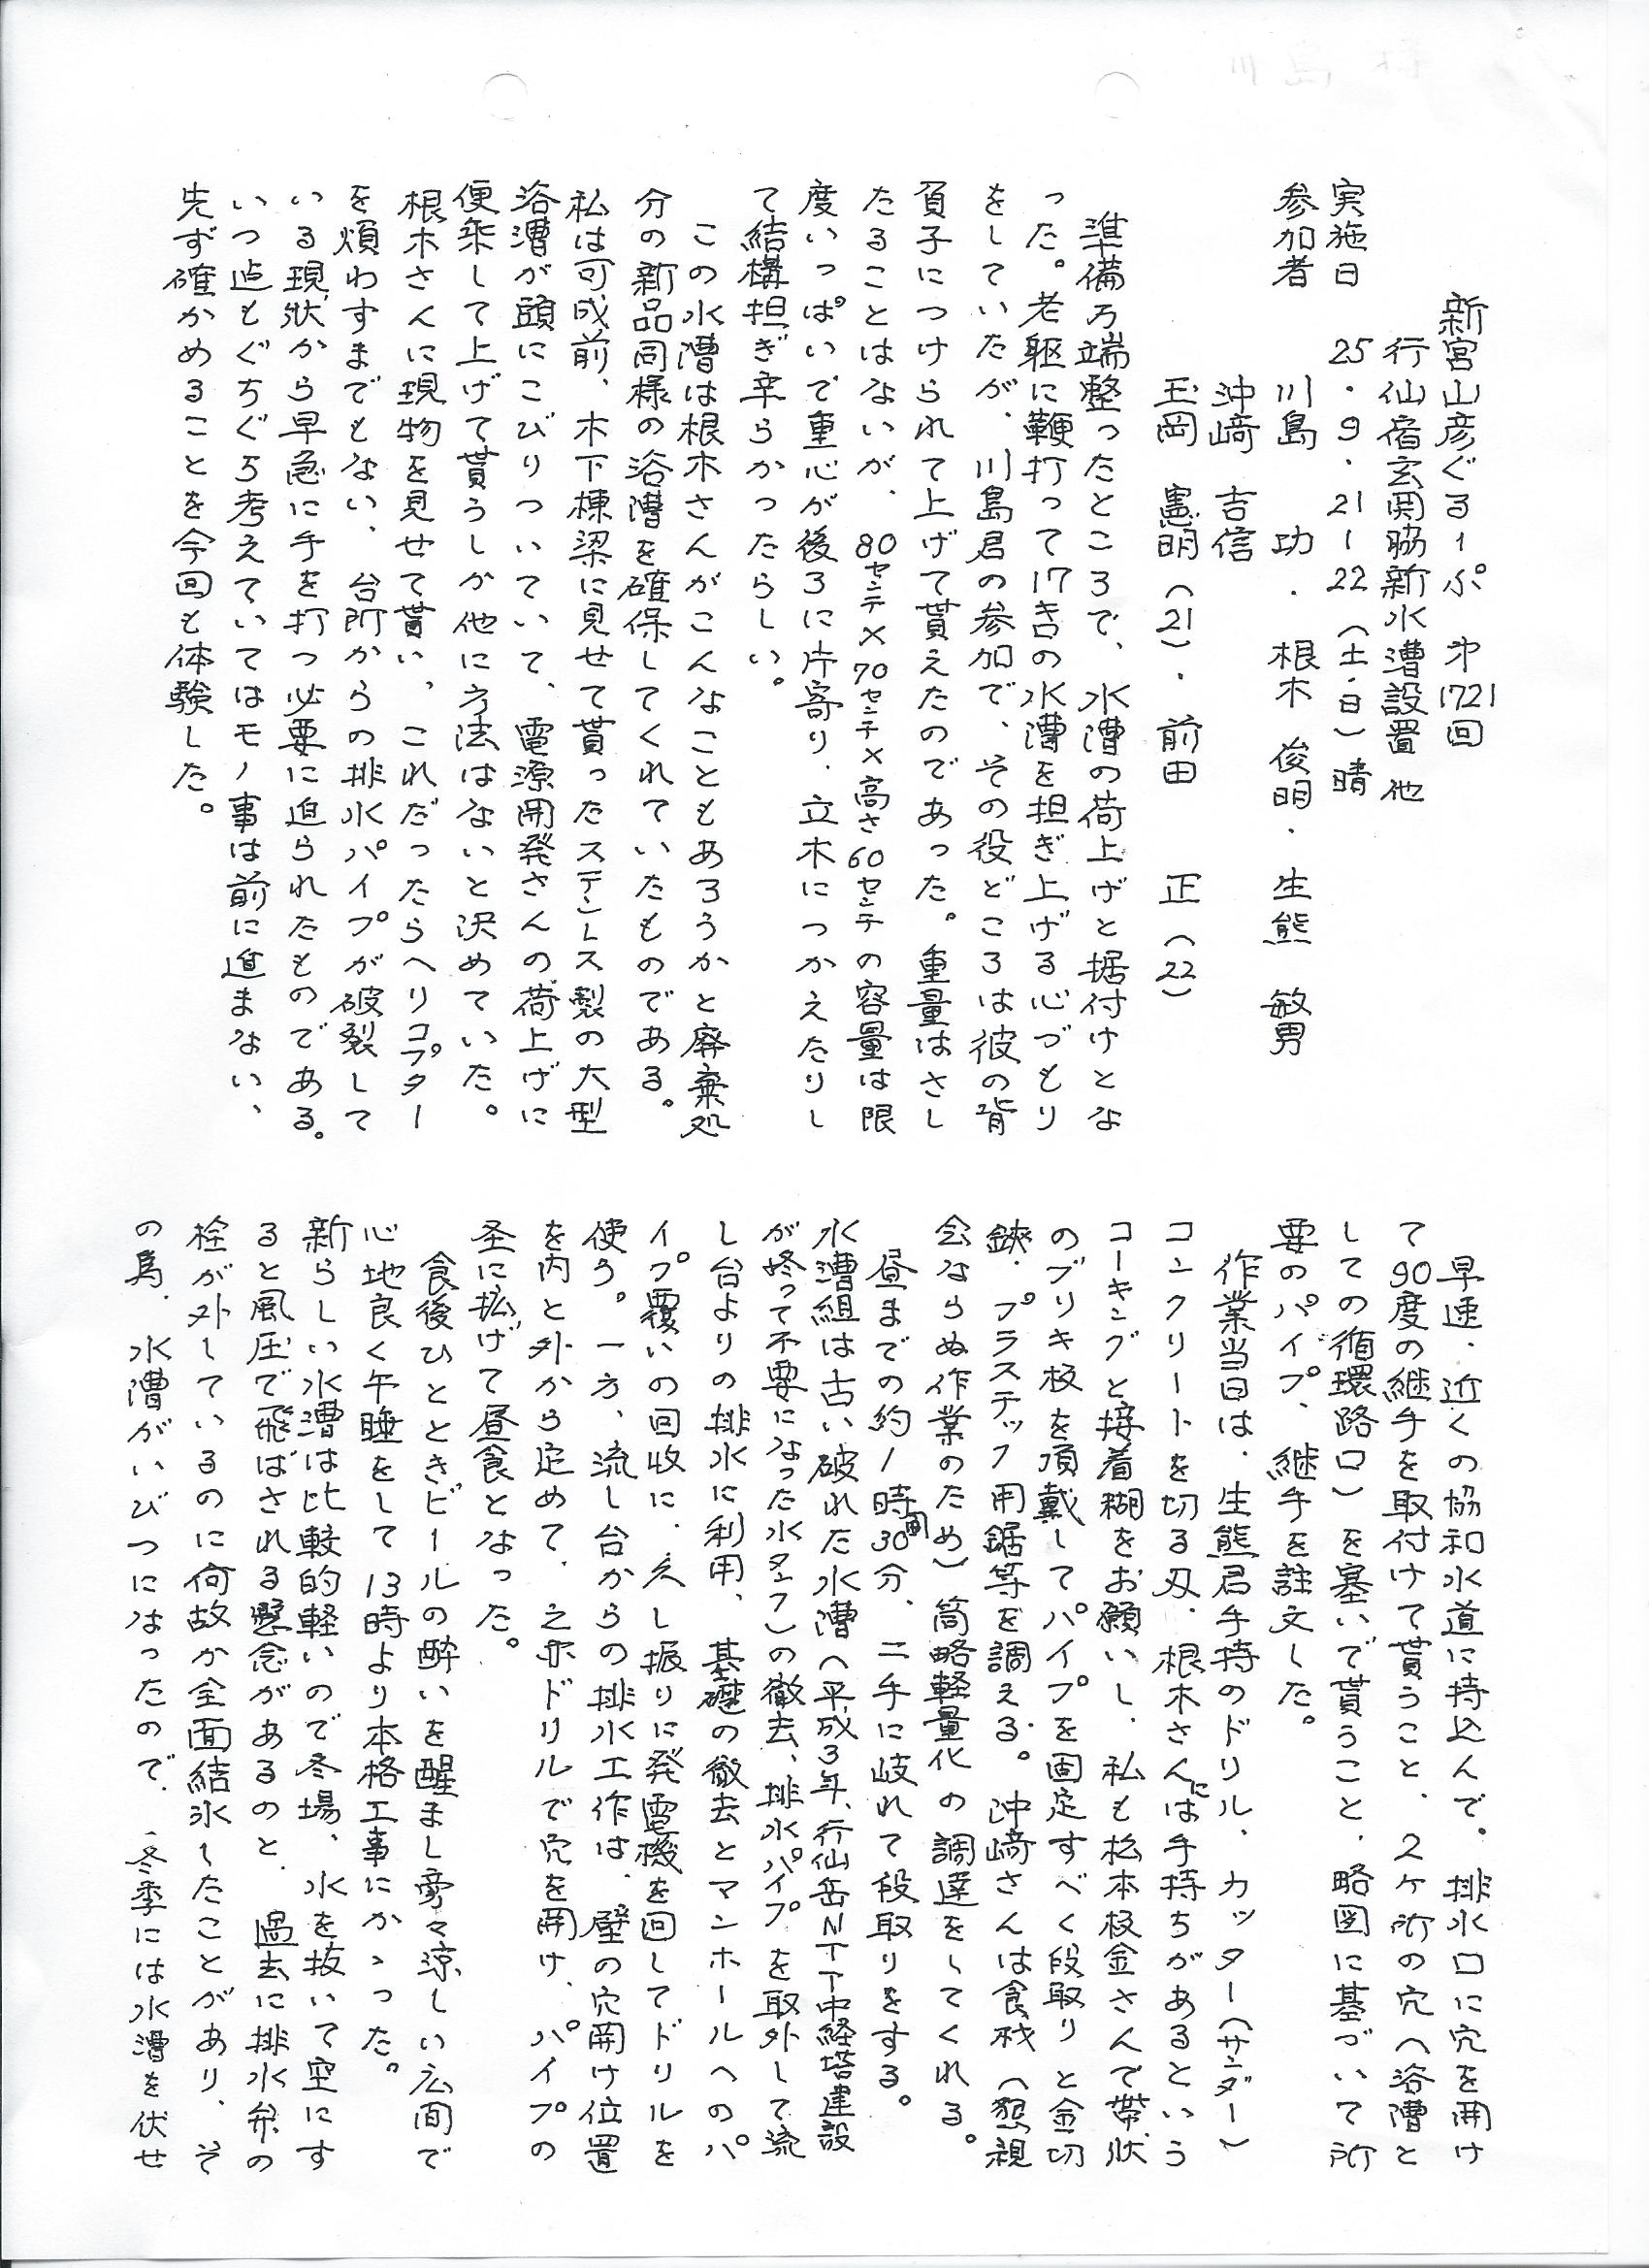 新宮山彦ぐるーぷ　第1721回
行仙宿玄関脇新水漕設置 他
実施日　25・9・21〜22（土・日）晴
参加者　川島　功・根木 俊明・生熊 敏男
沖﨑 吉信
玉岡 憲明（21）・前田 正（22）
準備万端整ったところで、水漕の荷上げと据付けとな
った。老躯に鞭打って17㌔の水漕を担ぎ上げる心づもり
をしていたが、川島君の参加で、その役どころは彼の背
負子につけられて上げて貰えたのであった。重量はさし
たることはないが、80センチ×70センチ×高さ60センチの容量は限
度いっぱいで重心が後ろに片寄り、立木につかえたりし
て結構担ぎ辛らかったらしい。
この水漕は根木さんがこんなこともあろうかと廃棄処
分の新品同様の浴漕を確保してくれていたものである。
私は可成前、木下棟梁に見せて貰ったステンレス製の大型
浴漕が頭にこびりついていて、電源開発さんの荷上げに
便乗して上げて貰うしか他に方法はないと決めていた。
根木さんに現物を見せて貰い、これだったらヘリコプター
を煩わすまでもない、台所からの排水パイプが破裂して
いる現状から早急に手を打つ必要に迫られたものである。
いつ迄もぐちぐち考えていてはモノ事は前に進まない、
先ず確かめることを今回も体験した。
早速、近くの協和水道に持込んで、排水口に穴を開け
て90度の継手を取付けて貰うこと、2ヶ所の穴（浴漕と
しての循環路口）を塞いで貰うこと、略図に基づいて所
要のパイプ、継手を註文した。
作業当日は、生熊君手持のドリル、カッター（サンダー）
コンクリートを切る刃、根木さんには手持ちがあるという
コーキングと接着糊をお願いし、私も松本板金さんで帯状
のブリキ板を頂戴してパイプを固定すべく段取りと金切
鋏、プラスチック用鋸等を調える。沖﨑さんは食材（懇親
会ならぬ作業のため）簡略軽量化の調達をしてくれる。
昼までの約1時間30分、二手に岐れて段取りをする。
水漕組は古い破れた水漕（平成3年、行仙岳NTT中経塔建設
が終って不要になった水タンク）の徹去、排水パイプを取外して流
し台よりの排水に利用、基礎の徹去とマンホールへのパ
イプ覆いの回収に、久し振りに発電機を回してドリルを
使う。一方、流し台からの排水工作は、壁の穴開け位置
を内と外から定めて、之亦ドリルで穴を開け、パイプの
圣に拡げて昼食となった。
食後ひとときビールの酔いを醒まし旁々涼しい広間で
心地良く午睡をして13時より本格工事にかゝった。
新らしい水漕は比較的軽いので冬場、水を抜いて空にす
ると風圧で飛ばされる懸念があるのと、過去に排水弁の
栓が外しているのに何故か全面結氷したことがあり、そ
の為、水漕がいびつになったので、冬季には水漕を伏せ